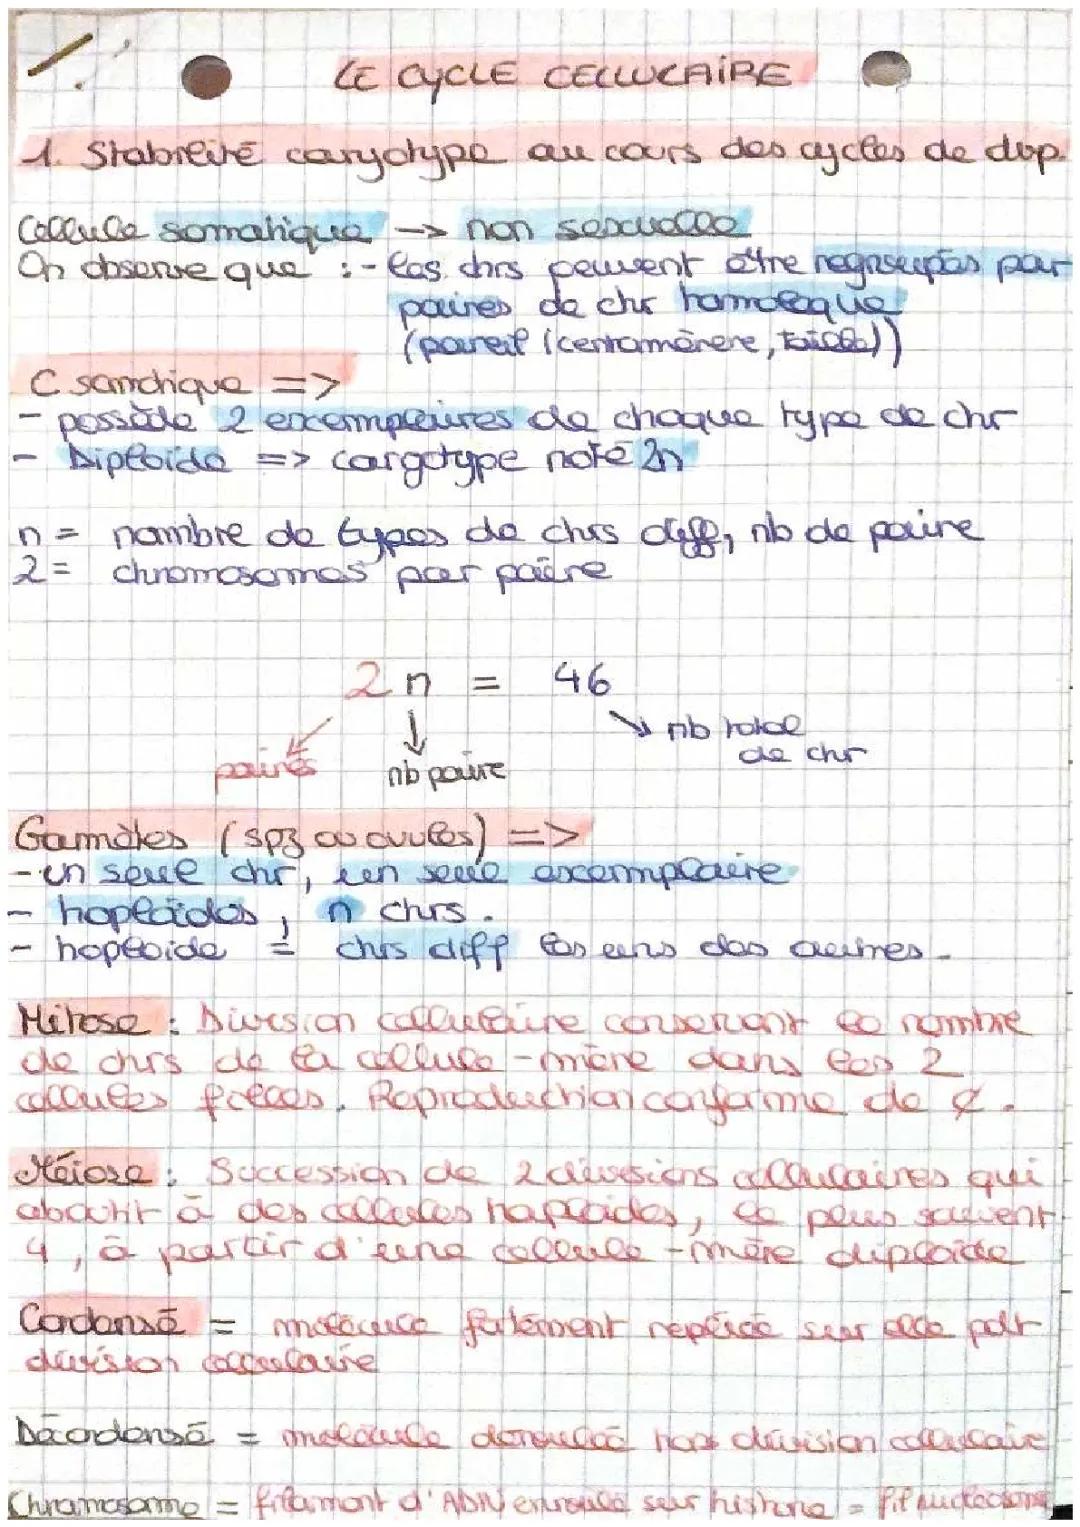 LE CYCLE CELLULAIRE
1. Stabilité caryotype au cours des cycles de dvp.
Cellule somatique → non sexuelle
On observe que :- les chrs peuvent être regroupés par
paires de chr homologue
(pareil (centromère, taille))
C somatique =>
- possède 2 excemplaires de chaque type de chr
- Diploïde => caryotype noté 2n
n = nombre de types de chrs diff, nb de paire
2 = chromosomes par paire
2n = 46
nb total
de chr
paires nb paire
Gamètes (spz ou ovules) =>
- un seul chr, un seul excemplaire
- haploïdes, n chrs.
- haploide = chrs diff les uns des autres.
Mitose : Division cellulaire conservant le nombre
de chrs de la cellule-mère dans les 2
cellules filles. Reproduction conforme de ¢.
Méiose : Succession de 2 divisions cellulaires qui
aboutit à des cellules haploïdes, le plus souvent
4, à partir d'une cellule-mère diploïde
Condensé = molécule fortement repliée sur elle
division cellulaire
Décondensé = molécule déroulée hors division cellulaire
Chromosome = filament d'ADN enroulé sur histone = fil nucléosome